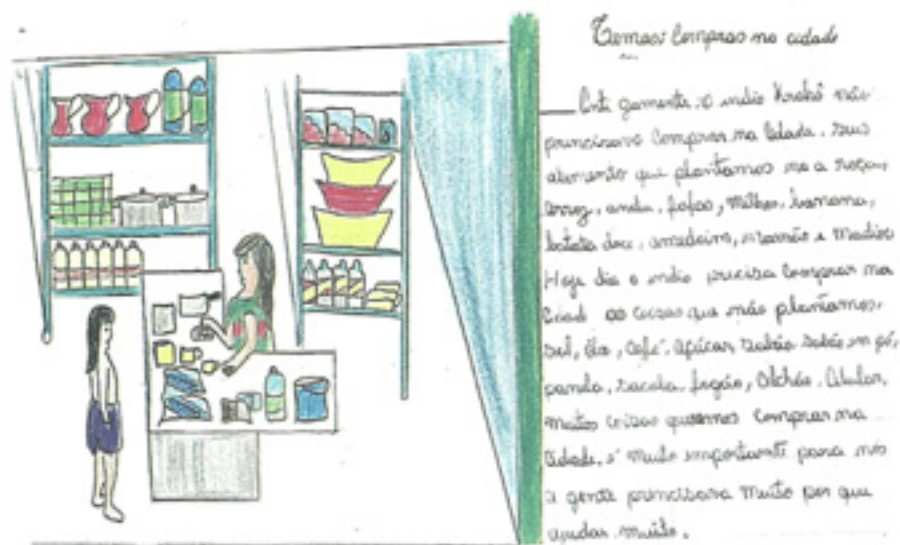 Temos Compras na cidade
Antigamente, o indio Krahô não
princisava Comprar na Cidade. seus
alimento que plantamos na a roça,
arroz, andu, fafas, milho, banana,
batata doce, amedoim, e mandioc
Hoje dia o indio precisa Comprar na
Cidade as coisas que não plantamos.
sal, óleo, café, açúcar, sabão sabão em pó,
panela, sacola, fogão, Colchão, Celular,
muitas coisas queremos Comprar na
Cidade, é muito importante para nós
a gente princisava muito por que
ajudar muito.